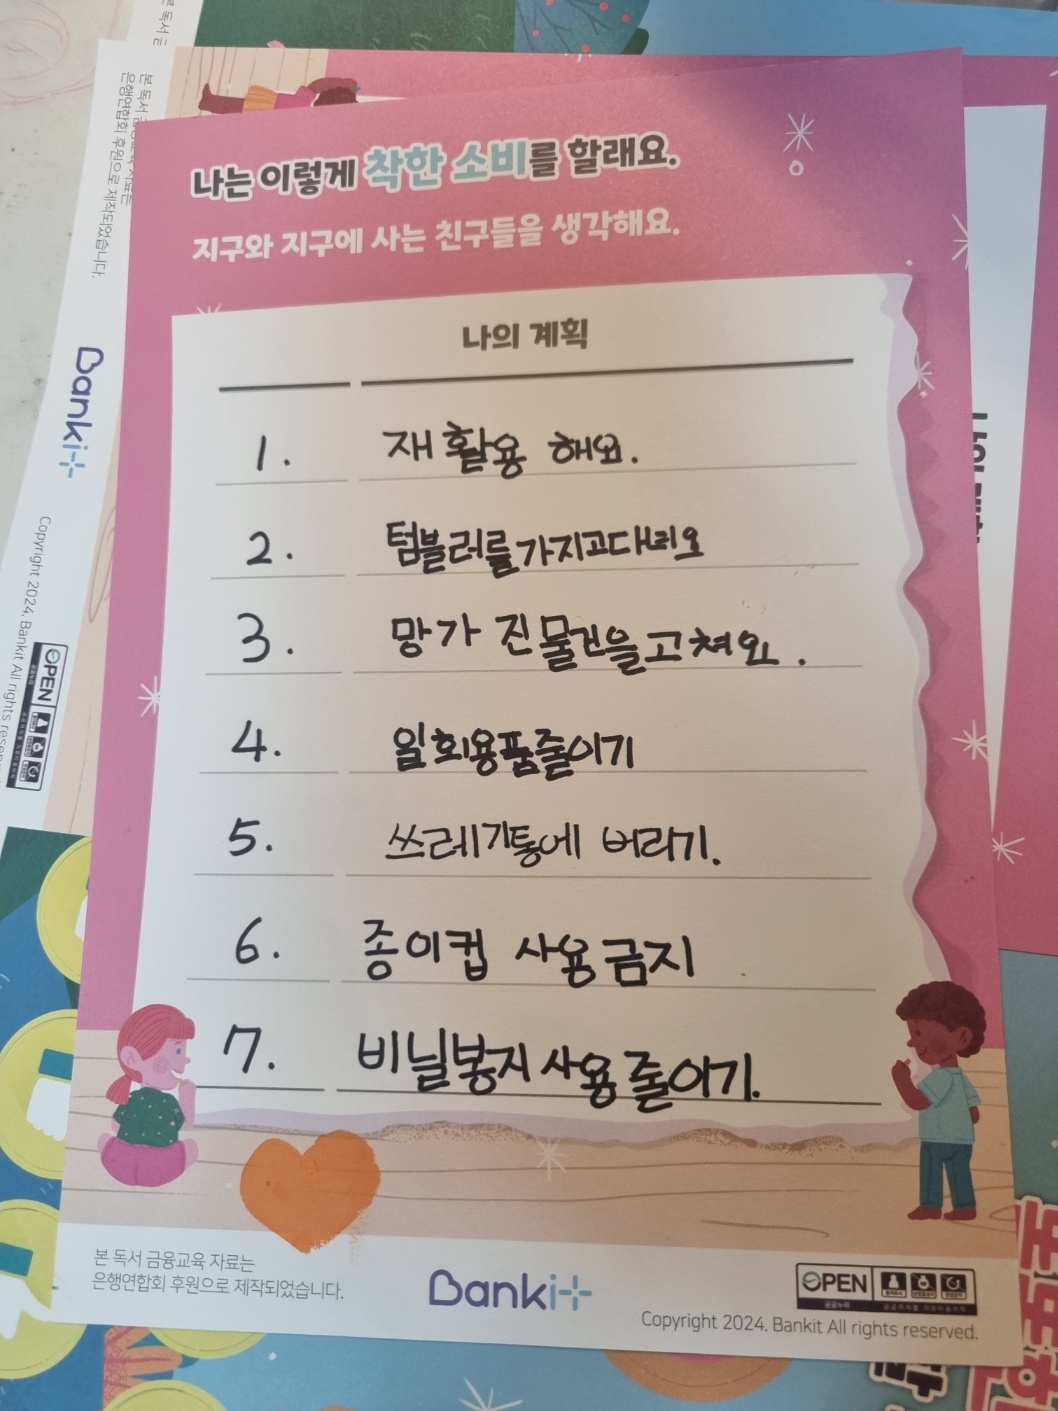 나는 이렇게 착한 소비를 할래요.
지구와 지구에 사는 친구들을 생각해요.
나의 계획
1. 재활용 해요.
2. 텀블러를가지고다녀요
3. 망가 진물건을고쳐요.
4. 일회용품줄이기
5. 쓰레기통에 버리기.
6. 종이컵 사용금지
7. 비닐봉지사용줄이기.
본 독서 금융교육 자료는
은행연합회 후원으로 제작되었습니다.
Bankit
OPEN
공공누리
Copyright 2024. Bankit All rights reserved.
은행연합회 후원으로 제작되었습니다.
Bankit
Copyright 2024. Bankit All rights
OPEN